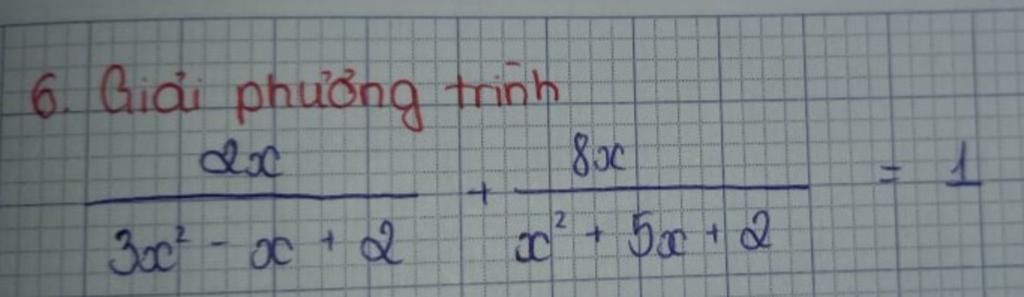 6. Giải phương trình
2x / (3x² - x + 2) + 8x / (x² + 5x + 2) = 1